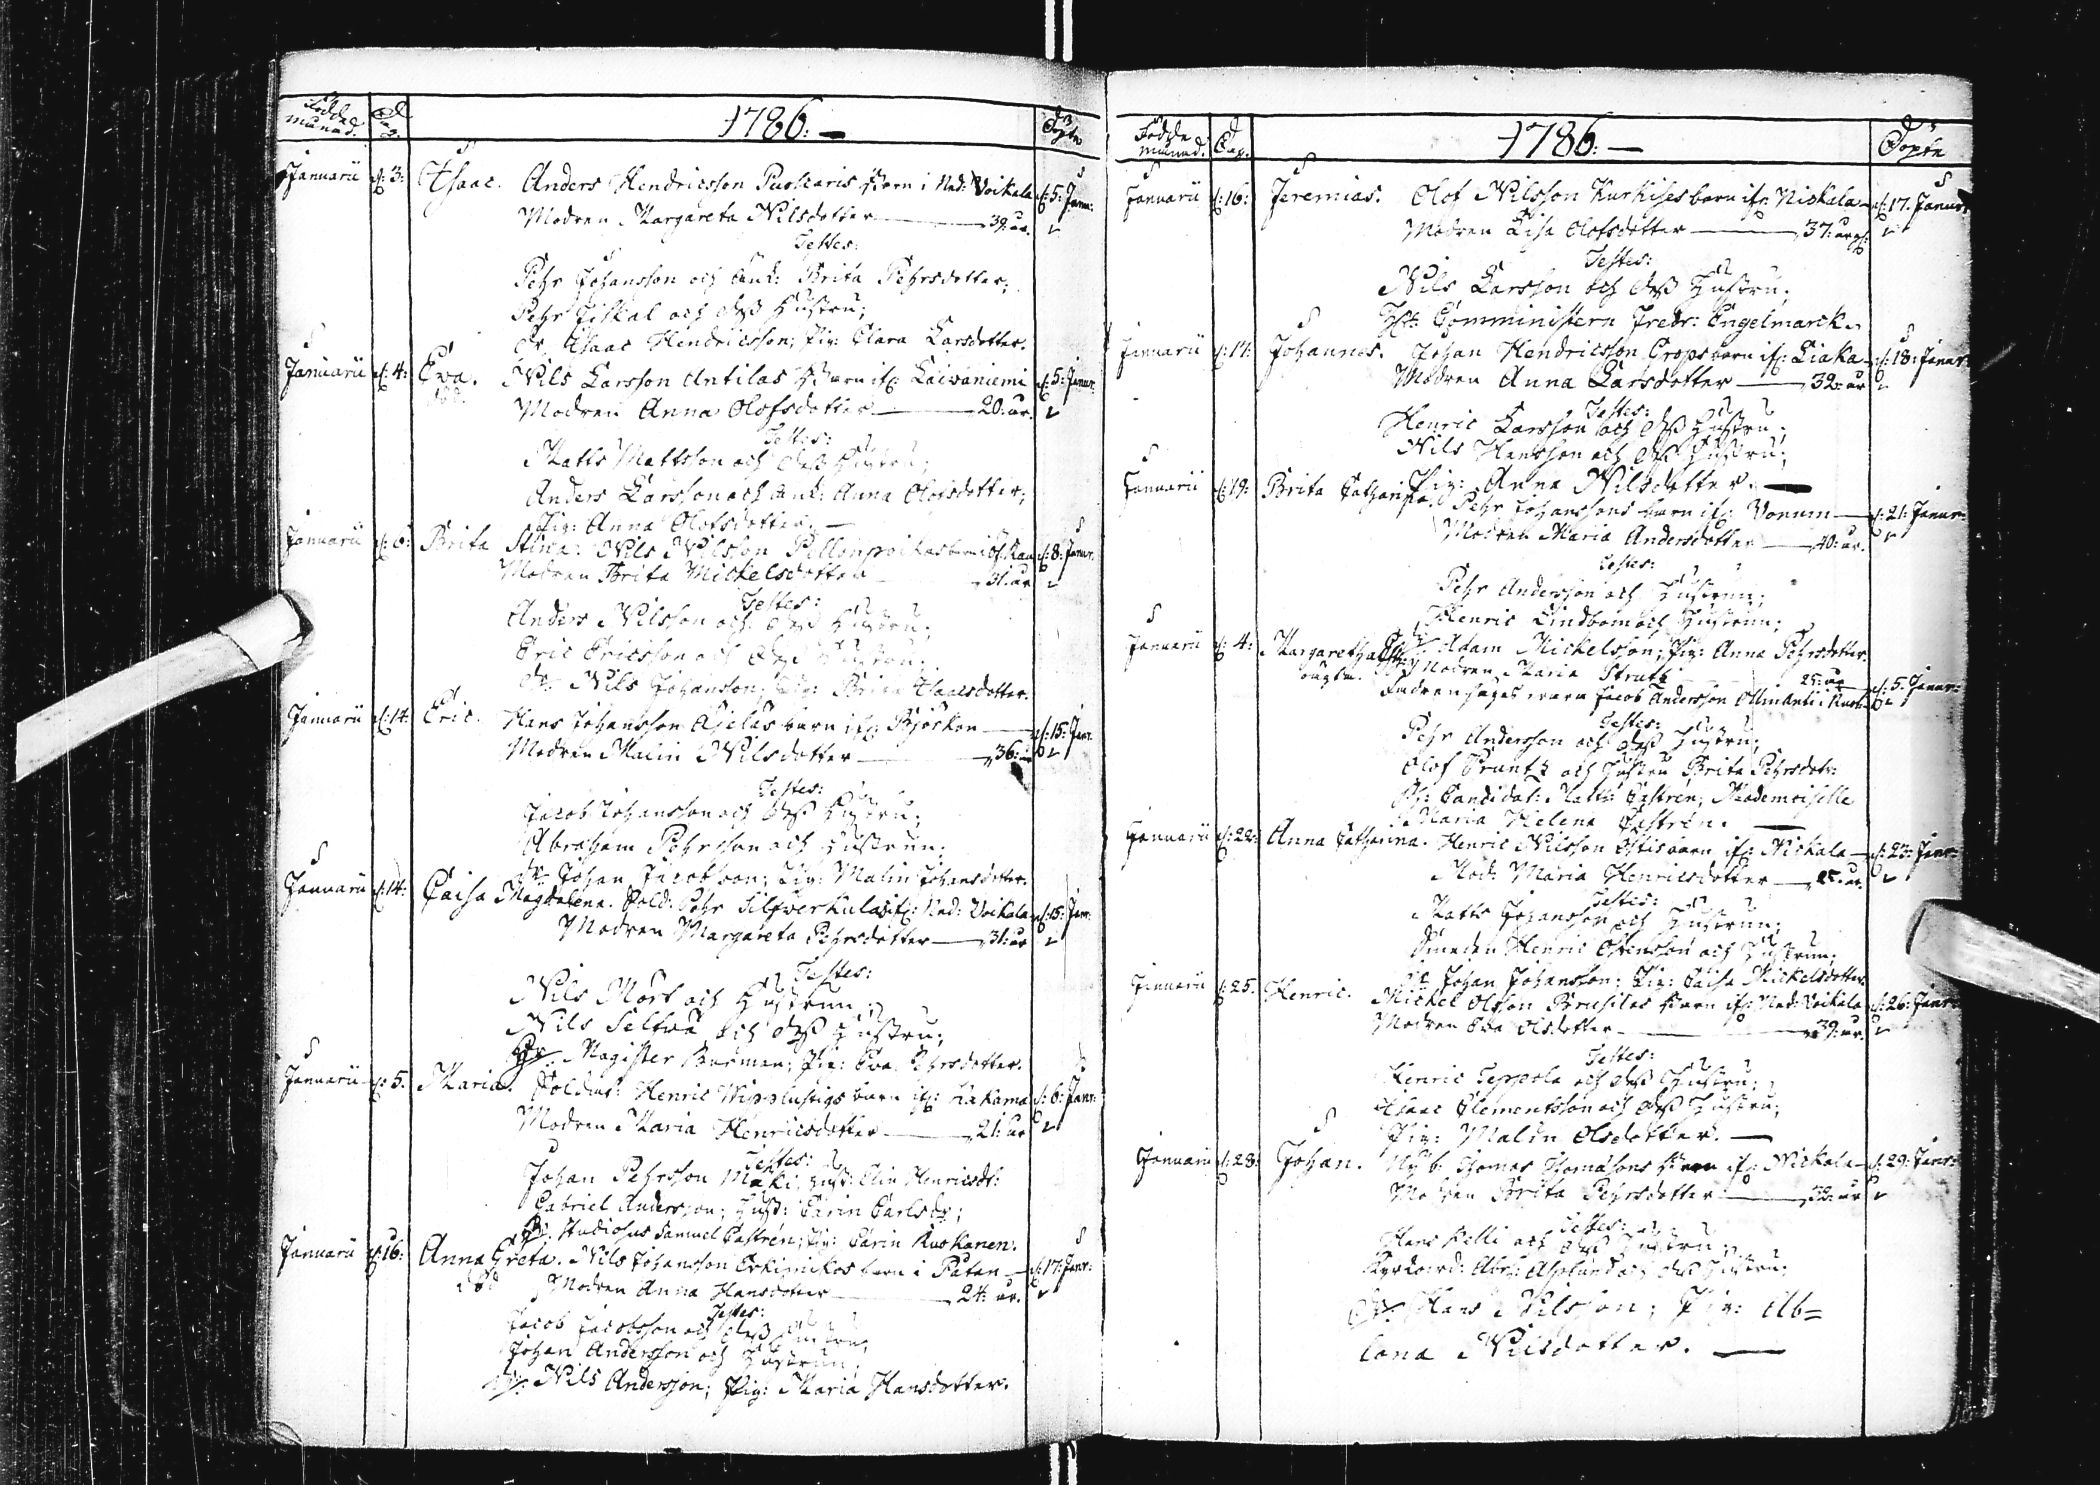 Födde månad. Dag 1786:— Döpte
Januarii d: 3: Isaac. Anders Hendricsson Puskaris barn i Ned: Voikala d: 5: Janu:
Modren Margareta Nilsdotter — 39: år.
Testes:
Pehr Johansson och Enk: Brita Pehrsdotter;
Pehr Fiskal och dess Hustru;
Dr. Isaac Hendricsson; Pig: Clara Larsdotter.
Januarii d: 4: Ewa. Nils Larsson Antilas Barn if: Laiwaniemi d: 5: Janur:
död. Modren Anna Olofsdotter — 20: år.
Testes:
Matts Mattsson och dess Hustru;
Anders Larsson och Enk: Anna Olofsdotter;
Pig: Anna Olofsdotter. —
Januarii d: 6: Brita Stina: Nils Nilsson barn d: 8: Janur:
Modren Brita Mickelsdotter — 31: år
Testes:
Anders Nilsson och dess Hustru;
Eric Ericsson och dess Hustru;
Dr. Nils Johansson; Pig: Brita Isaacsdotter.
Januarii d: 14: Eric. Hans Johansson barn if: Björkön — d: 15: Janr.
Modren Malin Nilsdotter — 36: år
Testes:
Jacob Johansson och dess Hustru;
Abraham Pehrsson och Hustrun;
Dr. Johan Jacobsson; Pig: Malin Johansdotter.
Januarii d: 14: Caisa Magdalena. Sold: Pehr Silfwerkulas if: Ned: Voikala d: 15: Janr:
Modren Margareta Pehrsdotter — 31: år
Testes:
Nils Mört och Hustrun;
Nils och dess Hustru;
Hr. Magister Burman; Pig: Eva Ehrsdotter.
Januarii d: 5: Maria. Soldat: Henric Wipplustigs barn if: Kakama d: 6: Janr:
Modren Maria Henricsdotter — 21: år
Testes:
Johan Pehrsson Mäki, Hust: Elin Henricsdr:
Gabriel Andersson; Hust: Carin Carlsdr;
Hr. Studiosus Samuel Castrén; Pig: Carin Ruokanen.
Januarii d: 16: Anna Greta. Nils Johansson Erkinikos barn i Pätan — d: 17: Janr:
död Modren Anna Hansdotter — 24: år.
Testes:
Jacob Jacobsson och dess Hustru;
Johan Andersson och Hustrun;
Dr. Nils Andersson; Pig: Maria Hansdotter.
Födde månad. Dag. 1786:— Döpte
Januarii d: 16: Jeremias. Olof Nilsson Kurkises barn ifr. Nickala — d: 17. Janur:
Modren Lisa Olofsdotter — 37: år
Testes:
Nils Larsson och dess Hustru;
Hr. Comministern Fredr: Engelmarck.
Januarii d: 17: Johannes. Johan Hendricsson Crops barn if: Liaka — d: 18: Janur:
Modren Anna Larsdotter — 32: år
Testes:
Henric Larsson och dess Hustru;
Nils Hansson och dess Hustru;
Pig: Anna Nilsdotter. —
Januarii d: 19: Brita Catharina. Pehr Johanssons barn if: Vonum — d: 21: Janur:
Modren Maria Andersdotter — 40: år.
Testes:
Pehr Andersson och Hustrun;
Henric Lindbom och Hustrun;
Dr. Adam Mickelsson; Pig: Anna Pehrsdotter.
Januarii d: 4: Margaretha Modren Maria Struts — 25: år
oägta. Fadren säges wara Jacob Andersson d: 5: Janur:
Testes:
Pehr Andersson och dess Hustru;
Olof Pruntz och Hustru Brita Pehrsdotr:
Hr: Candidat: Matth: Castrén; Mademoiselle
Maria Helena Castrén. —
Januarii d: 22: Anna Catharina. Henric Nilsson Ostis barn if: Nickala — d: 23: Janr:
Mod: Maria Henricsdotter — år.
Testes:
Matts Johansson och Hustrun;
Smeden Henric och Hustrun;
Dr. Johan Johansson; Pig: Caisa Mickelsdotter.
Januarii d: 25. Henric. Mickel Olsson Brusilas Barn if: Ned: Voikala d: 26: Janr:
Modren Eva Olsdotter — 39: år.
Testes:
Henric Seppola och dess Hustru;
Isaac Clementsson och dess Hustru;
Pig: Malin Olsdotter. —
Januarii d: 28: Johan. Nyb. Thomas Thomasons Barn if: Nickala — d: 29: Janr:
Modren Brita Pehrsdotter — 32: år
Testes:
Hans Kelli och dess Hustru;
Kyrkovrd: Abr: Asplund och dess Hustru;
Dr. Hans Nilsson; Pig: Ab=
lona Nilsdotter. —